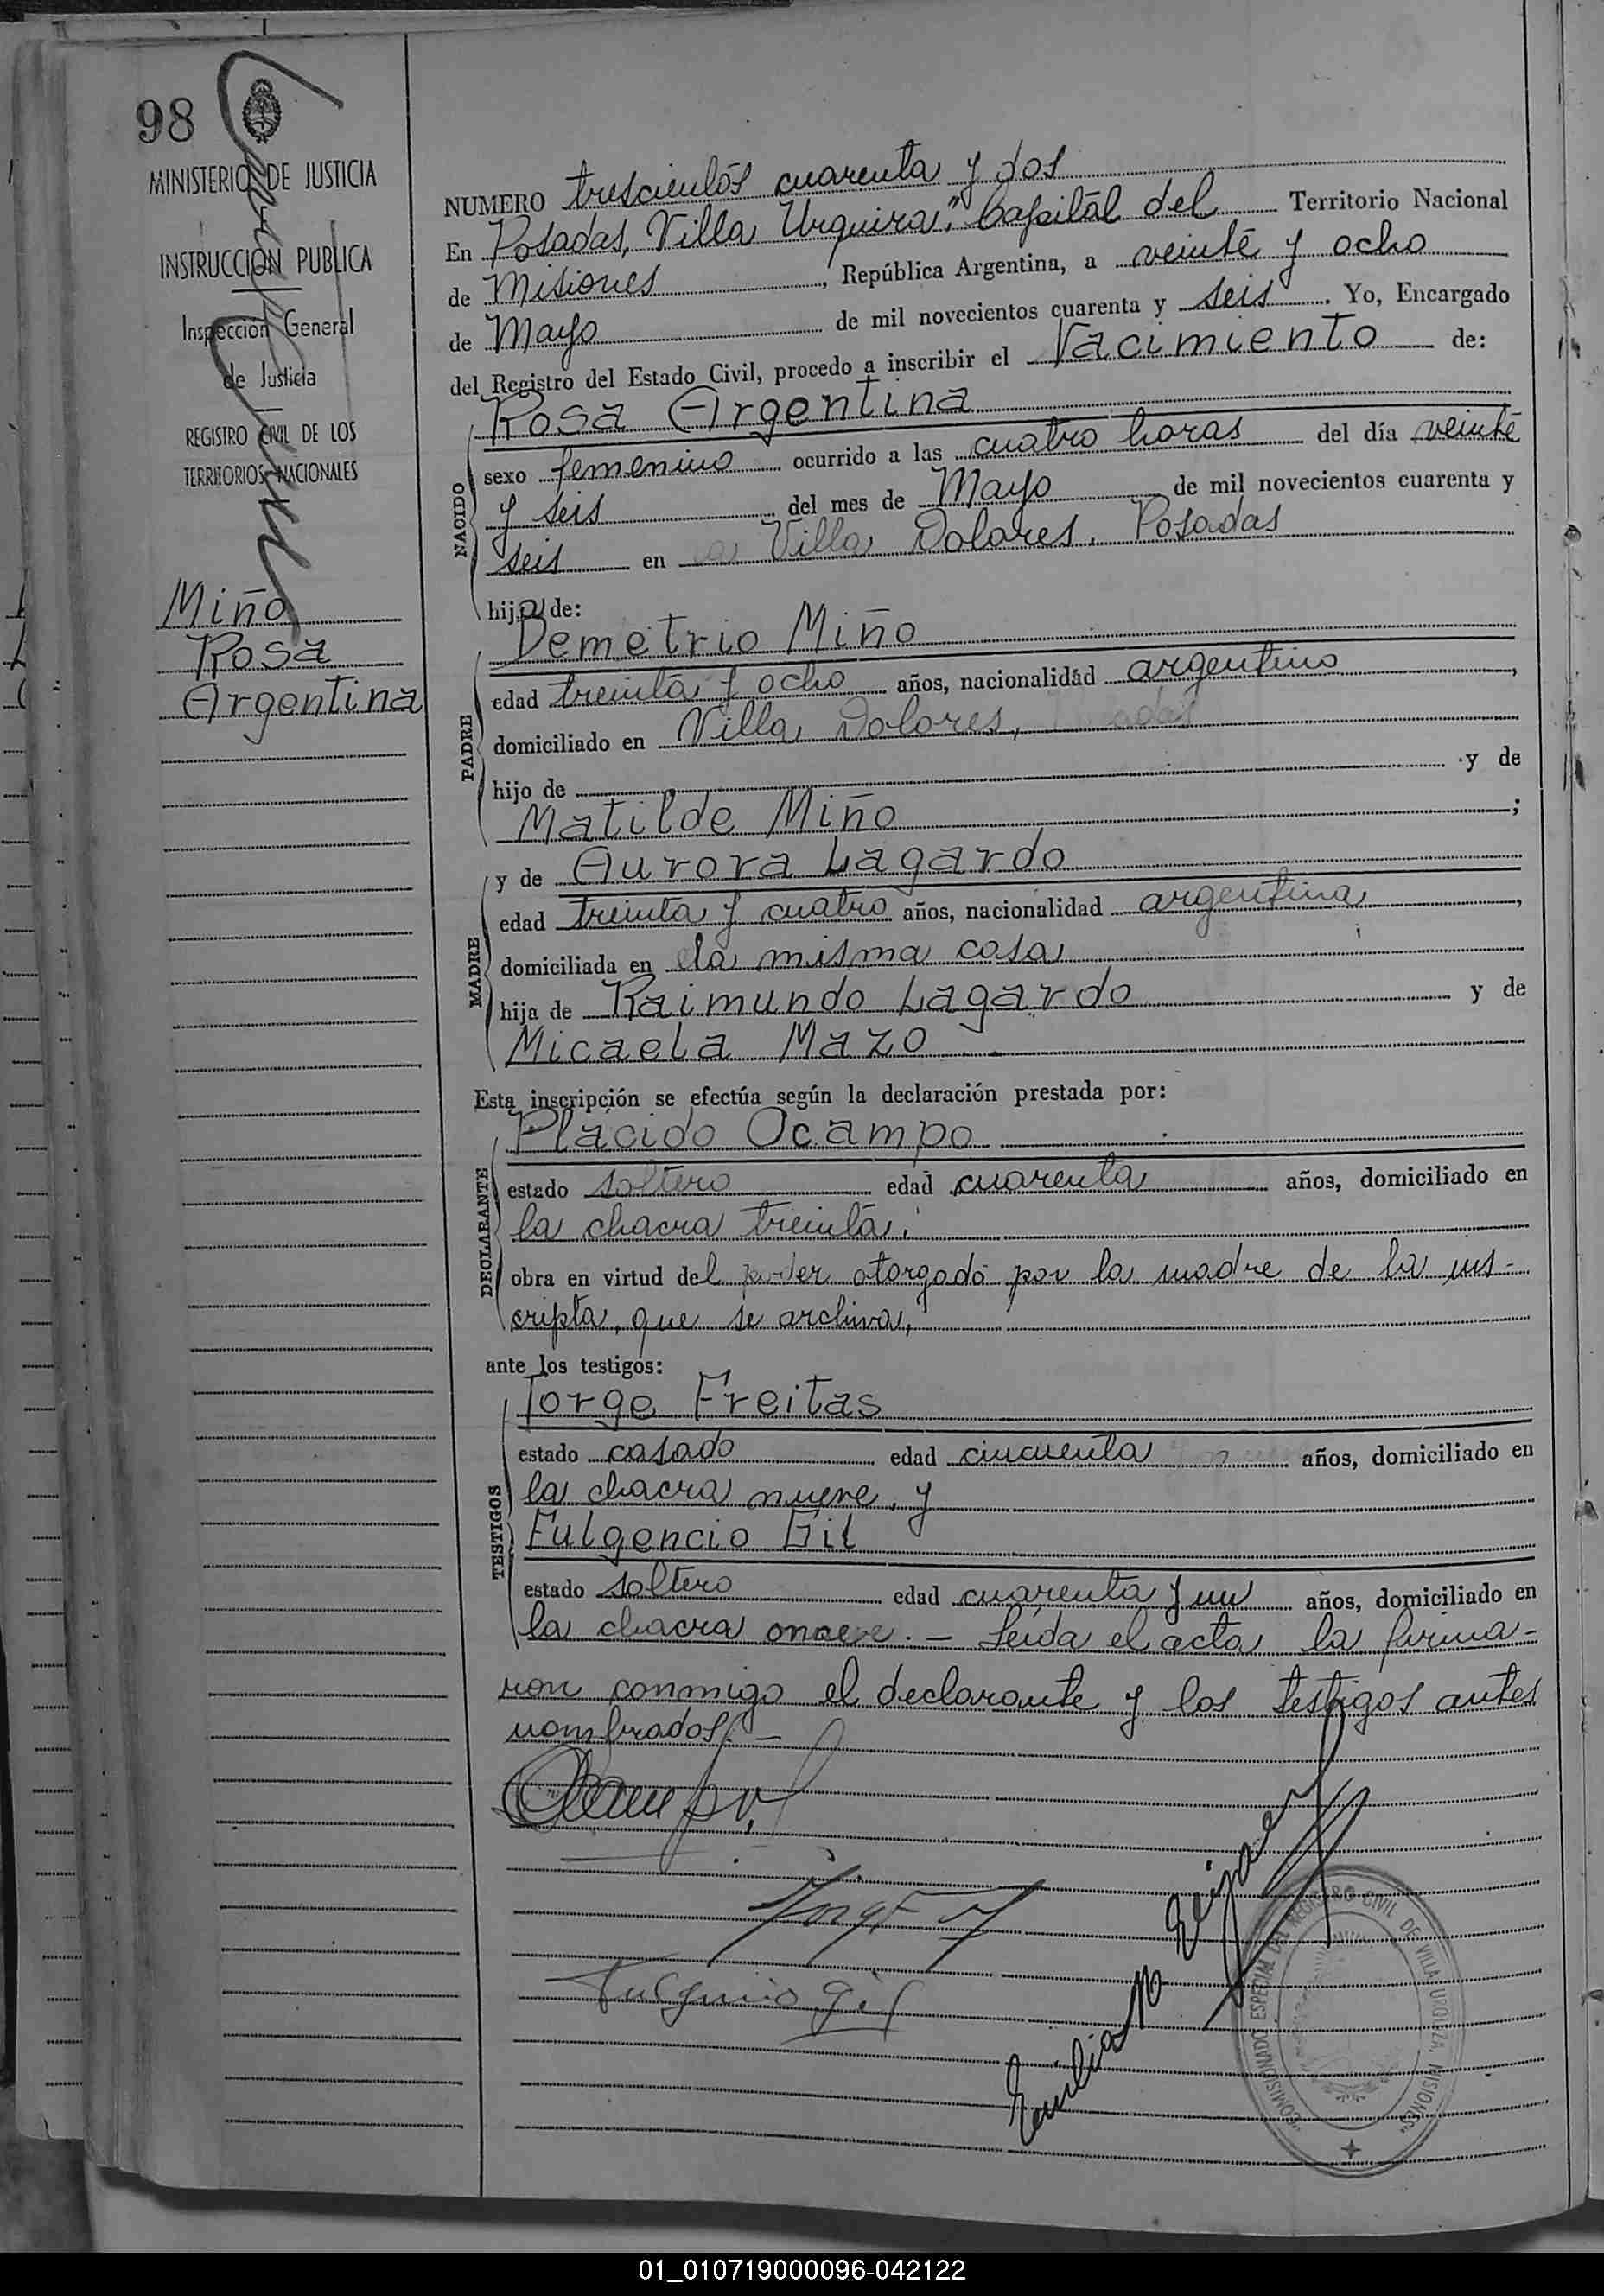 98
MINISTERIO DE JUSTICIA
INSTRUCCION PUBLICA
Inspección General
de Justicia
REGISTRO CIVIL DE LOS
TERRITORIOS NACIONALES
Miño
Rosa
Argentina
NUMERO trescientos cuarenta y dos
En Posadas, Villa Urquiza, Capital del Territorio Nacional
de Misiones, República Argentina, a veinte y ocho
de Mayo de mil novecientos cuarenta y seis. Yo, Encargado
del Registro del Estado Civil, procedo a inscribir el Nacimiento de:
NACIDO
Rosa Argentina
sexo femenino ocurrido a las cuatro horas del día veinte
y seis del mes de Mayo de mil novecientos cuarenta y
seis en Villa Dolores. Posadas
hija de:
PADRE
Demetrio Miño
edad treinta y ocho años, nacionalidad argentino,
domiciliado en Villa Dolores,
hijo de y de
Matilde Miño;
MADRE
y de Aurora Lagardo
edad treinta y cuatro años, nacionalidad argentina,
domiciliada en la misma casa
hija de Raimundo Lagardo y de
Micaela Mazo
Esta inscripción se efectúa según la declaración prestada por:
DECLARANTE
Plácido Ocampo
estado soltero edad cuarenta años, domiciliado en
la chacra treinta,
obra en virtud del poder otorgado por la madre de la ins-
cripta, que se archiva,
ante los testigos:
TESTIGOS
Jorge Freitas
estado casado edad cincuenta años, domiciliado en
la chacra nueve, y
Fulgencio Gil
estado soltero edad cuarenta y un años, domiciliado en
la chacra once. — Leída el acta la firma-
ron conmigo el declarante y los testigos antes
nombrados. —
Ocampo
Fulgencio Gil
COMISIONADO ESPECIAL DEL REGISTRO CIVIL DE VILLA URQUIZA, MISIONES
01_010719000096-042122